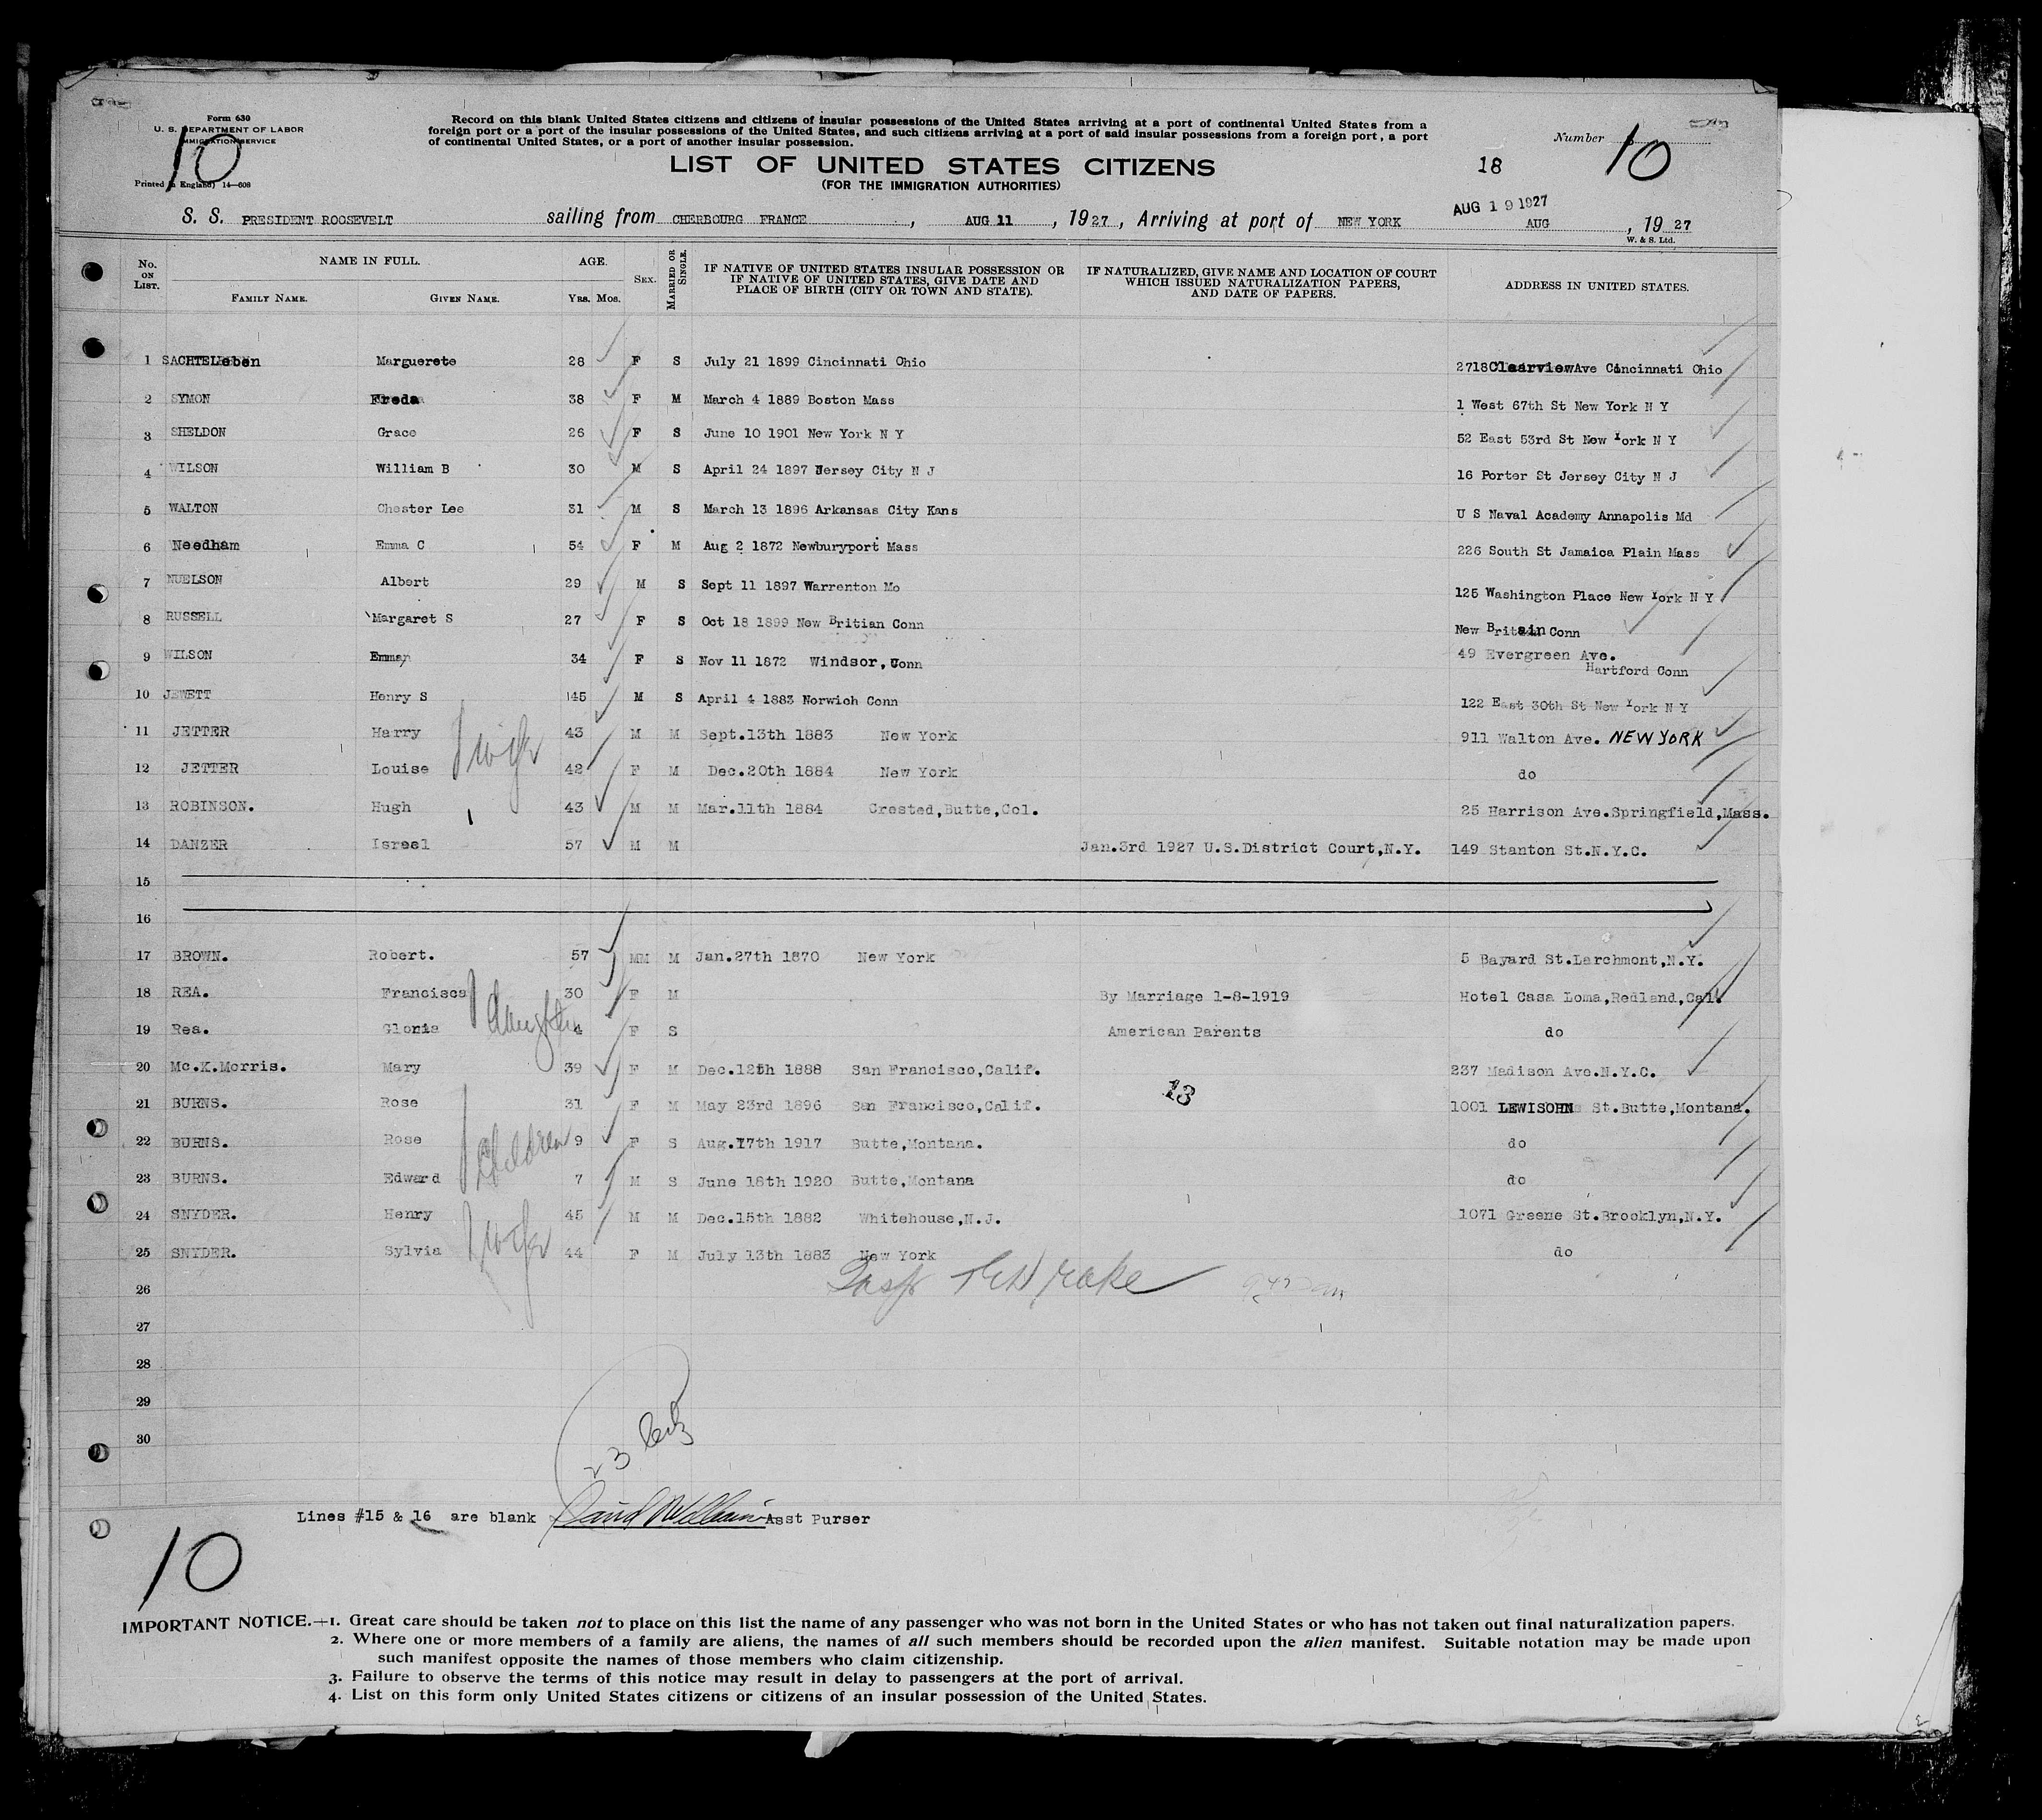 Form 630
U. S. DEPARTMENT OF LABOR
IMMIGRATION SERVICE
10
Printed in England) 14—608
Record on this blank United States citizens and citizens of insular possessions of the United States arriving at a port of continental United States from a
foreign port or a port of the insular possessions of the United States, and such citizens arriving at a port of said insular possessions from a foreign port, a port
of continental United States, or a port of another insular possession.
Number 10
LIST OF UNITED STATES CITIZENS
18
(FOR THE IMMIGRATION AUTHORITIES)
AUG 19 1927
S. S. PRESIDENT ROOSEVELT sailing from CHERBOURG FRANCE, AUG 11, 1927, Arriving at port of NEW YORK AUG, 1927
W. & S. Ltd.
No. ON LIST. NAME IN FULL. FAMILY NAME. GIVEN NAME. AGE. YRS. MOS. SEX. MARRIED OR SINGLE. IF NATIVE OF UNITED STATES INSULAR POSSESSION OR IF NATIVE OF UNITED STATES, GIVE DATE AND PLACE OF BIRTH (CITY OR TOWN AND STATE). IF NATURALIZED, GIVE NAME AND LOCATION OF COURT WHICH ISSUED NATURALIZATION PAPERS, AND DATE OF PAPERS. ADDRESS IN UNITED STATES.
1 SACHTELeben Marguerete 28 F S July 21 1899 Cincinnati Ohio 2718 Clearview Ave Cincinnati Ohio
2 SYMON Freda 38 F M March 4 1889 Boston Mass 1 West 67th St New York N Y
3 SHELDON Grace 26 F S June 10 1901 New York N Y 52 East 53rd St New York N Y
4 WILSON William B 30 M S April 24 1897 Jersey City N J 16 Porter St Jersey City N J
5 WALTON Chester Lee 31 M S March 13 1896 Arkansas City Kans U S Naval Academy Annapolis Md
6 Needham Emma C 54 F M Aug 2 1872 Newburyport Mass 226 South St Jamaica Plain Mass
7 NUELSON Albert 29 M S Sept 11 1897 Warrenton Mo 125 Washington Place New York N Y
8 RUSSELL Margaret S 27 F S Oct 18 1899 New Britian Conn New Britain Conn
9 WILSON Emma 34 F S Nov 11 1872 Windsor, Conn 49 Evergreen Ave. Hartford Conn
10 JEWETT Henry S 45 M S April 4 1883 Norwich Conn 122 East 30th St New York N Y
11 JETTER Harry 43 M M Sept.13th 1883 New York 911 Walton Ave. NEW YORK
12 JETTER Louise wife 42 F M Dec.20th 1884 New York do
13 ROBINSON. Hugh 43 M M Mar.11th 1884 Crested,Butte,Col. 25 Harrison Ave.Springfield,Mass.
14 DANZER Israel 57 M M Jan.3rd 1927 U.S.District Court,N.Y. 149 Stanton St.N.Y.C.
15
16
17 BROWN. Robert. 57 MM M Jan.27th 1870 New York 5 Bayard St.Larchmont,N.Y.
18 REA. Francisca 30 F M By Marriage 1-8-1919 Hotel Casa Loma,Redland,Cal.
19 Rea. Gloria daughter 4 F S American Parents do
20 Mc.K.Morris. Mary 39 F M Dec.12th 1888 San Francisco,Calif. 237 Madison Ave.N.Y.C.
13
21 BURNS. Rose 31 F M May 23rd 1896 San Francisco,Calif. 1001 LEWISOHN St.Butte,Montana.
22 BURNS. Rose children 9 F S Aug.17th 1917 Butte,Montana. do
23 BURNS. Edward 7 M S June 18th 1920 Butte,Montana do
24 SNYDER. Henry 45 M M Dec.15th 1882 Whitehouse,N.J. 1071 Greene St.Brooklyn,N.Y.
25 SNYDER. Sylvia wife 44 F M July 13th 1883 New York do
26
27
28
29
30
23
Lines #15 & 16 are blank Asst Purser
10
IMPORTANT NOTICE.—1. Great care should be taken not to place on this list the name of any passenger who was not born in the United States or who has not taken out final naturalization papers.
2. Where one or more members of a family are aliens, the names of all such members should be recorded upon the alien manifest. Suitable notation may be made upon
such manifest opposite the names of those members who claim citizenship.
3. Failure to observe the terms of this notice may result in delay to passengers at the port of arrival.
4. List on this form only United States citizens or citizens of an insular possession of the United States.